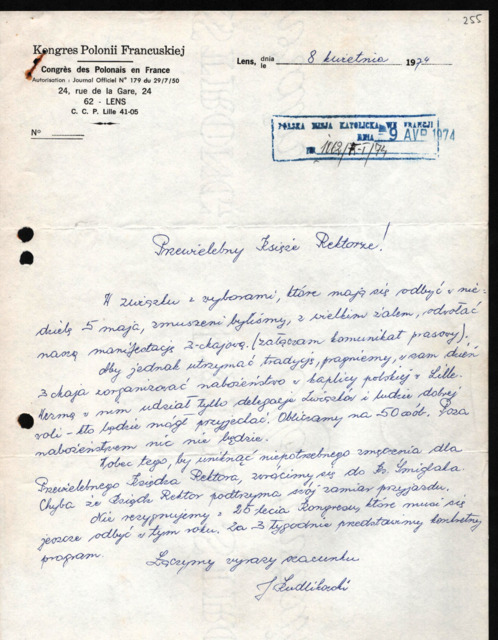 255
Kongres Polonii Francuskiej
Congrès des Polonais en France
Autorisation : Journal Officiel N° 179 du 29/7/50
24, rue de la Gare, 24
62 - LENS
C. C. P. Lille 41-05
N°
Lens, dnia le 8 kwietnia 1974
POLSKA MISJA KATOLICKA WE FRANCJI
DNIA 9 AVR 1974
Przewielebny Księże Rektorze!
W związku z wyborami, które mają się odbyć w nie-
dzielę 5 maja, zmuszeni byliśmy, z wielkim żalem, odwołać
naszą manifestację 3-majową. (załączam komunikat prasowy).
Aby jednak utrzymać tradycję, pragniemy, w sam dzień
3 maja zorganizować nabożeństwo w kaplicy polskiej w Lille.
Wezmą w nim udział tylko delegacje Związków i ludzie dobrej
woli - kto będzie mógł przyjechać. Obliczamy na 50 osób. Poza
nabożeństwem nic nie będzie.
Wobec tego, by uniknąć niepotrzebnego zmęczenia dla
Przewielebnego Księdza Rektora, zwróciliśmy się do Ks. Gmiglaka.
Chyba że Ksiądz Rektor podtrzyma swój zamiar przyjazdu.
Nie rezygnujemy z 25 lecia Kongresu, które musi się
jeszcze odbyć w tym roku. Za 3 tygodnie przedstawimy konkretny
program.
Łączymy wyrazy szacunku